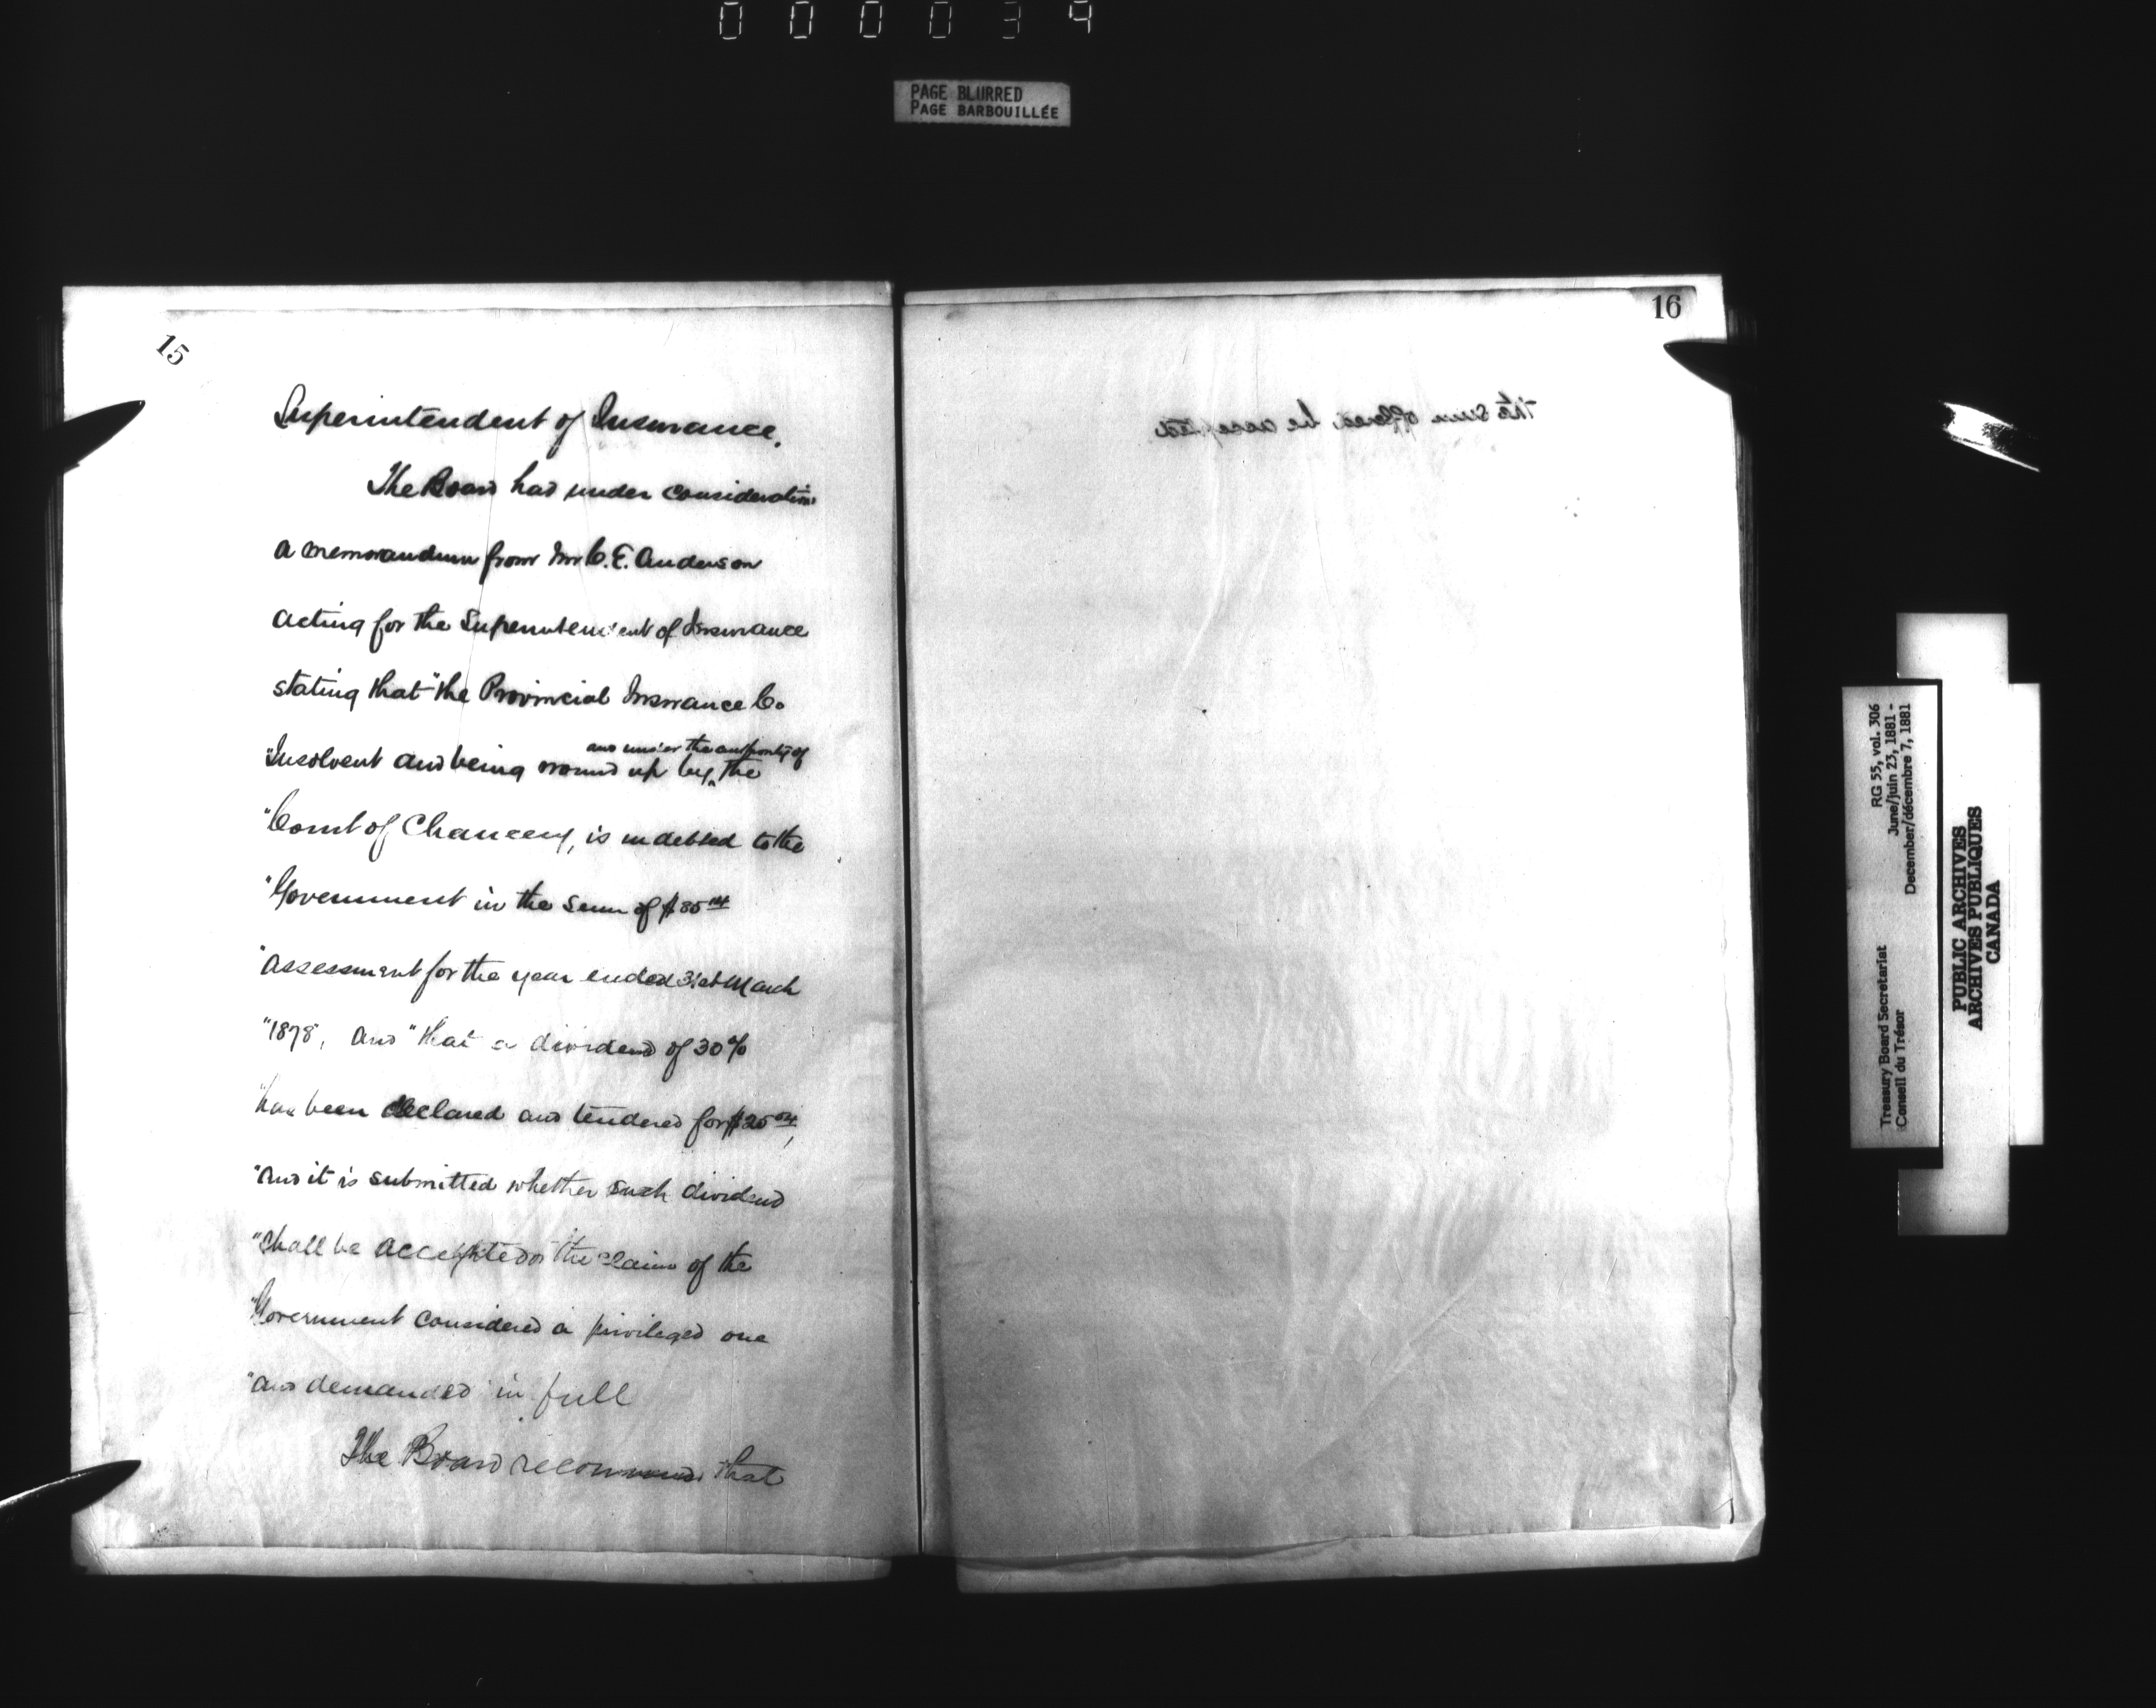 000039
PAGE BLURRED
PAGE BARBOUILLÉE
15
Superintendent of Insurance.
The Board had under consideration
a memorandum from Mr C. E. Anderson
acting for the Superintendent of Insurance
stating that "the Provincial Insurance Co
and under the authority of
"Insolvent and being wound up by ‸ the
"Court of Chancery, is indebted to the
"Government in the sum of $85
"assessment for the year ended 31st March
"1878", and "that a dividend of 30%
"has been declared and tendered for
"and it is submitted whether such dividend
"shall be accepted or the claim of the
"Government considered a privileged one
"and demanded in full
The Board recommend that
16
the sum offered be accepted
Treasury Board Secretariat
Conseil du Trésor
RG 55, vol. 306
June/juin 23, 1881 -
December/décembre 7, 1881
PUBLIC ARCHIVES
ARCHIVES PUBLIQUES
CANADA